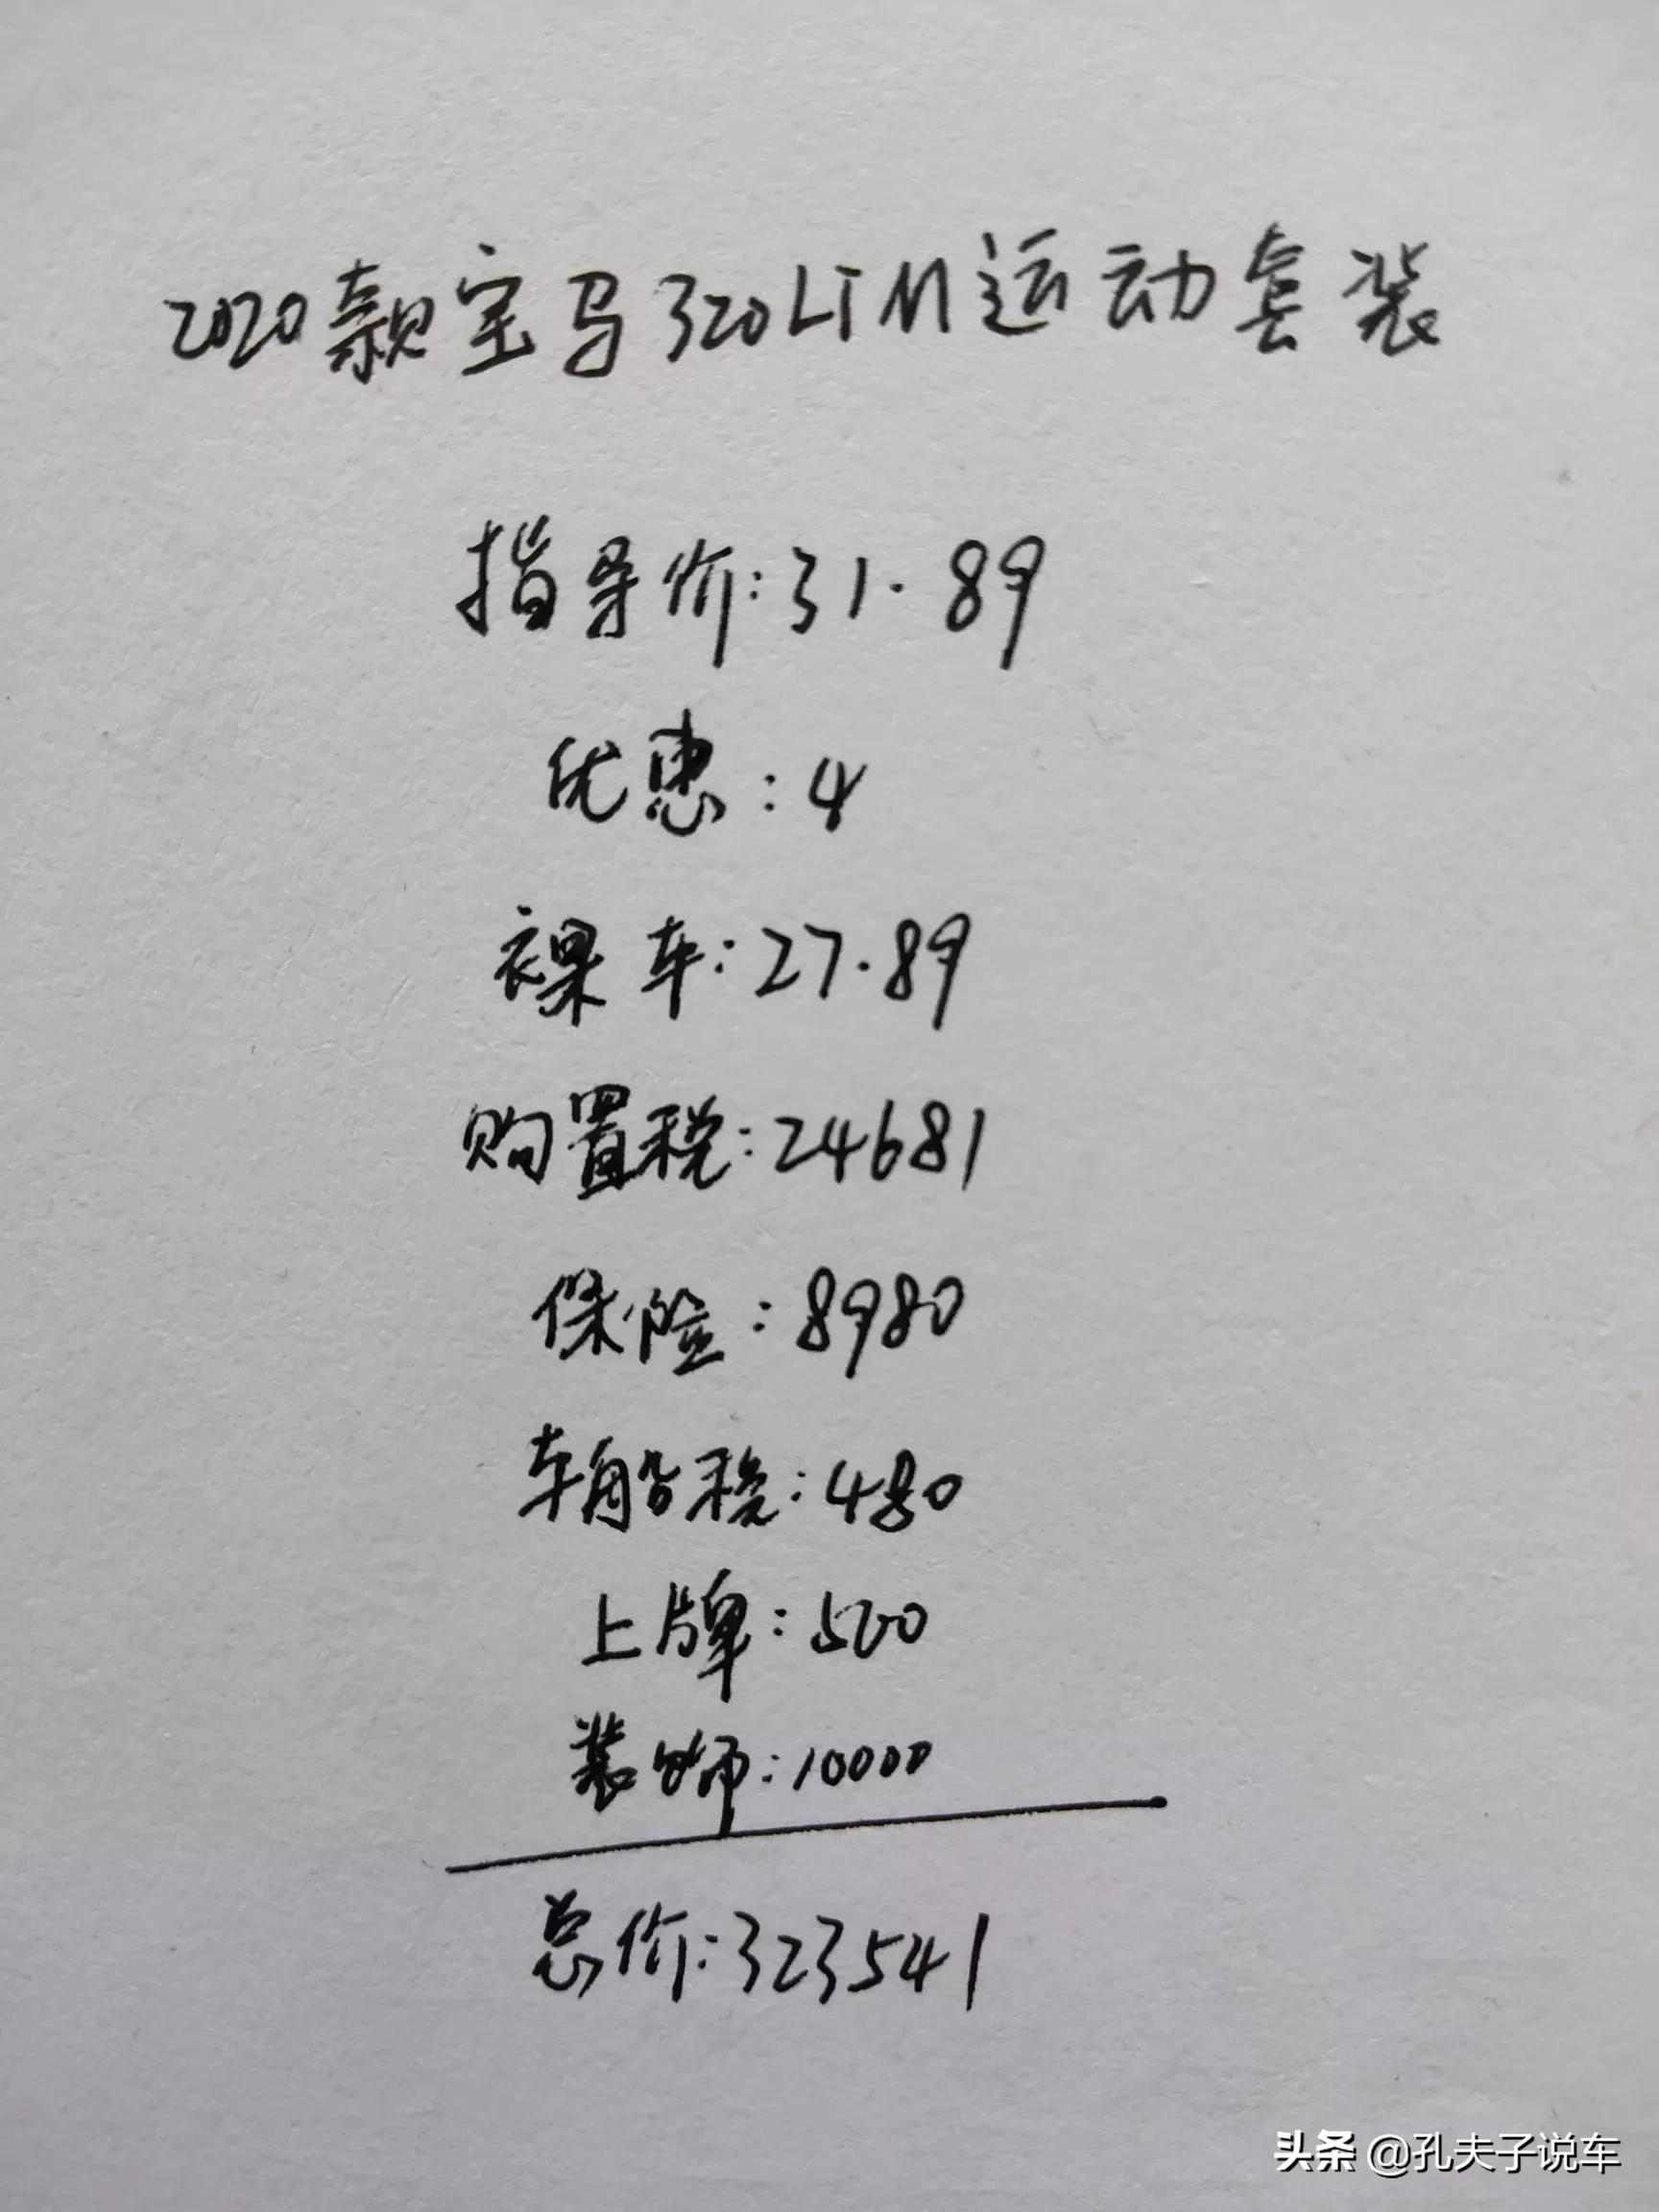 2020款宝马320LiM运动套装
指导价:31.89
优惠:4
裸车:27.89
购置税:24681
保险:8980
车船税:480
上牌:500
装饰:10000
总价:323541
头条 @孔夫子说车